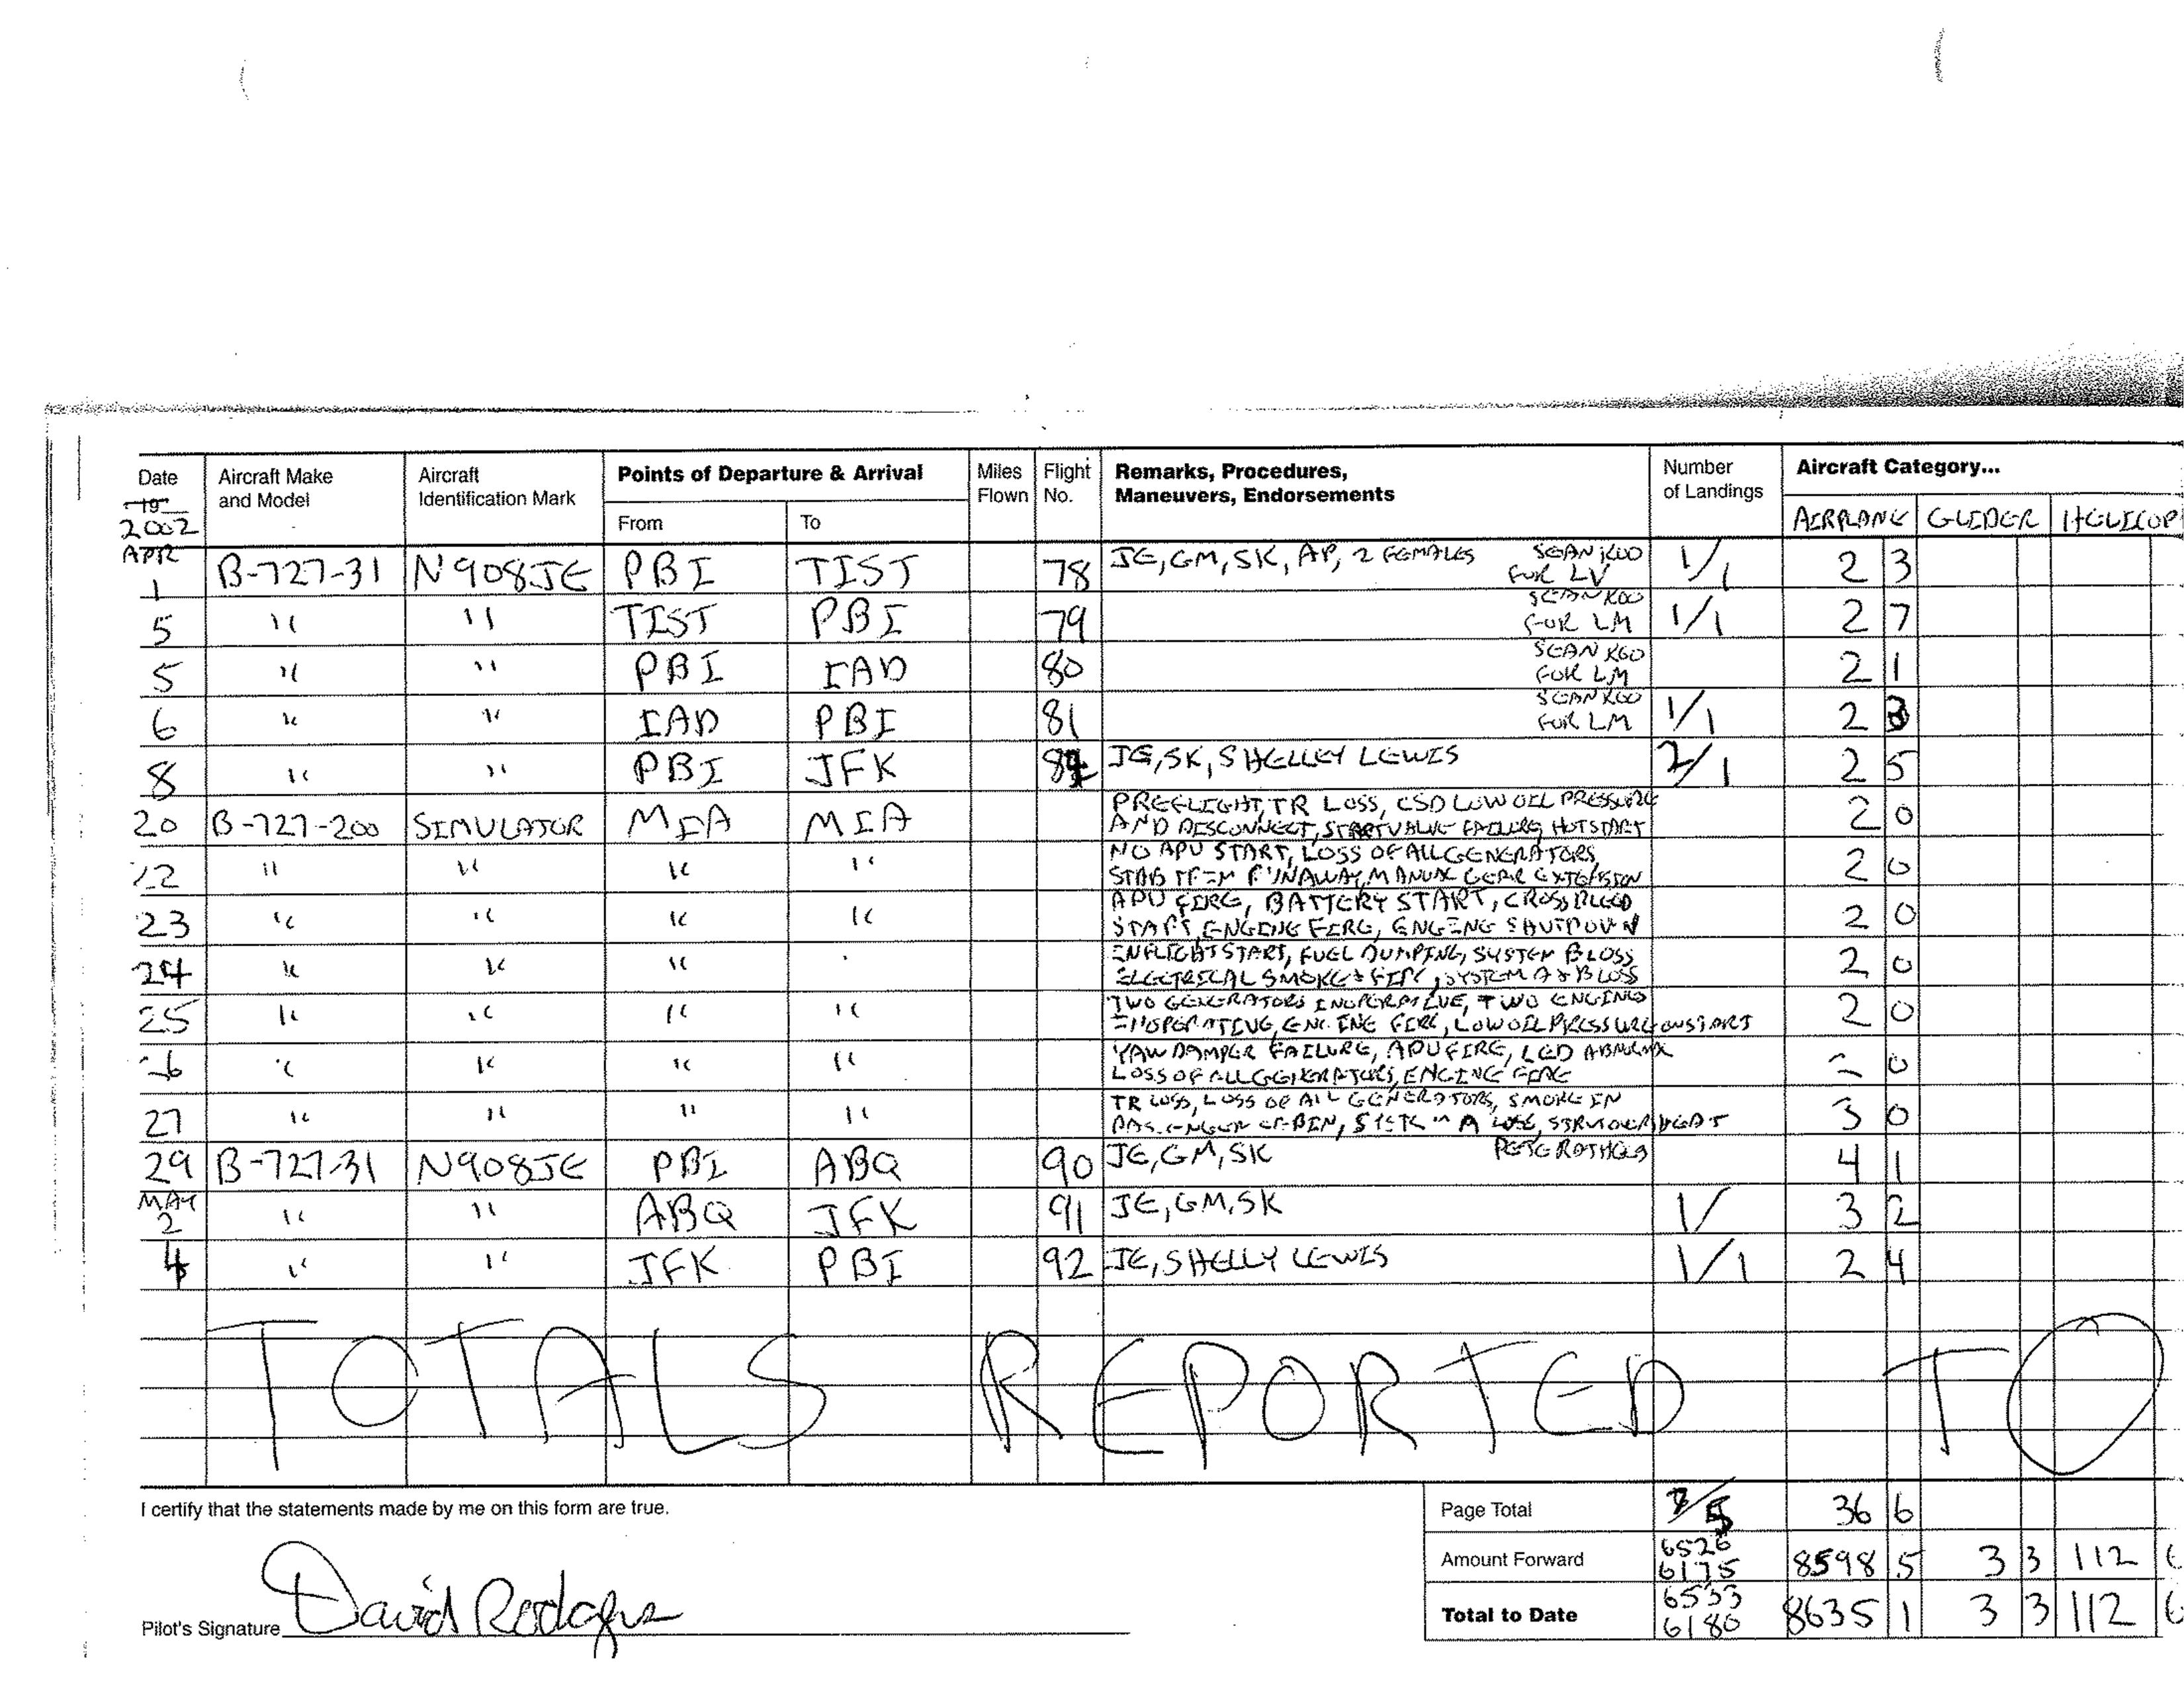 Date Aircraft Make and Model Aircraft Identification Mark Points of Departure & Arrival Miles Flown Flight No. Remarks, Procedures, Maneuvers, Endorsements Number of Landings Aircraft Category...
19
2002 From To AIRPLANE GLIDER HELICOP
APR
1 B-727-31 N908JE PBI TIST 78 JE, GM, SK, AP, 2 FEMALES SEAN KOO FOR LV 1/1 2 3
5 " " TIST PBI 79 SEAN KOO FOR LM 1/1 2 7
5 " " PBI IAD 80 SEAN KOO FOR LM 2 1
6 " " IAD PBI 81 SEAN KOO FOR LM 1/1 2 3
8 " " PBI JFK JE, SK, SHELLEY LEWIS 2/1 2 5
20 B-727-200 SIMULATOR MIA MIA PREFLIGHT, TR LOSS, CSD LOW OIL PRESSURE 2 0
AND DISCONNECT, START VALVE FAILURE, HOT START
22 " " " " NO APU START, LOSS OF ALL GENERATORS, 2 0
STAB TRIM RUNAWAY, MANUAL GEAR EXTENSION
23 " " " " APU FIRE, BATTERY START, CROSSBLEED 2 0
START, ENGINE FIRE, ENGINE SHUTDOWN
24 " " " INFLIGHT START, FUEL DUMPING, SYSTEM B LOSS 2 0
ELECTRICAL SMOKE & FIRE, SYSTEM A & B LOSS
25 " " " " TWO GENERATORS INOPERATIVE, TWO ENGINES 2 0
INOPERATIVE, ENGINE FIRE, LOW OIL PRESSURE ON START
26 " " " " YAW DAMPER FAILURE, APU FIRE, LED 2 0
LOSS OF ALL GENERATORS, ENGINE FIRE
27 " " " " TR LOSS, LOSS OF ALL GENERATORS, SMOKE IN 3 0
PASSENGER CABIN, SYSTEM A LOSS,
29 B-727-31 N908JE PBI ABQ 90 JE, GM, SK PETE 4 1
MAY
2 " " ABQ JFK 91 JE, GM, SK 1/ 3 2
4 " " JFK PBI 92 JE, SHELLY LEWIS 1/1 2 4
TOTALS REPORTED TO
I certify that the statements made by me on this form are true.
Page Total 7/5 36 6
Amount Forward 6526 6175 8598 5 3 3 112
Total to Date 6533 6180 8635 1 3 3 112 6
Pilot's Signature David Rodgers